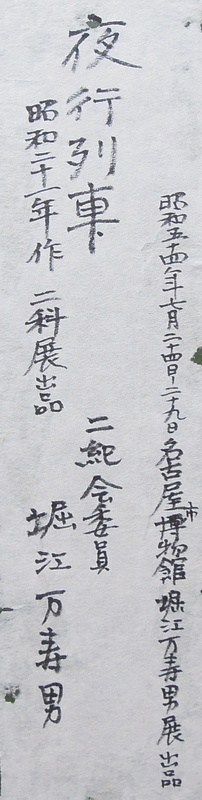 昭和五十四年七月二十四日-二十九日名古屋市博物館堀江万寿男展出品
夜行列車
昭和二十一年作 二科展出品
二紀会委員
堀江万寿男